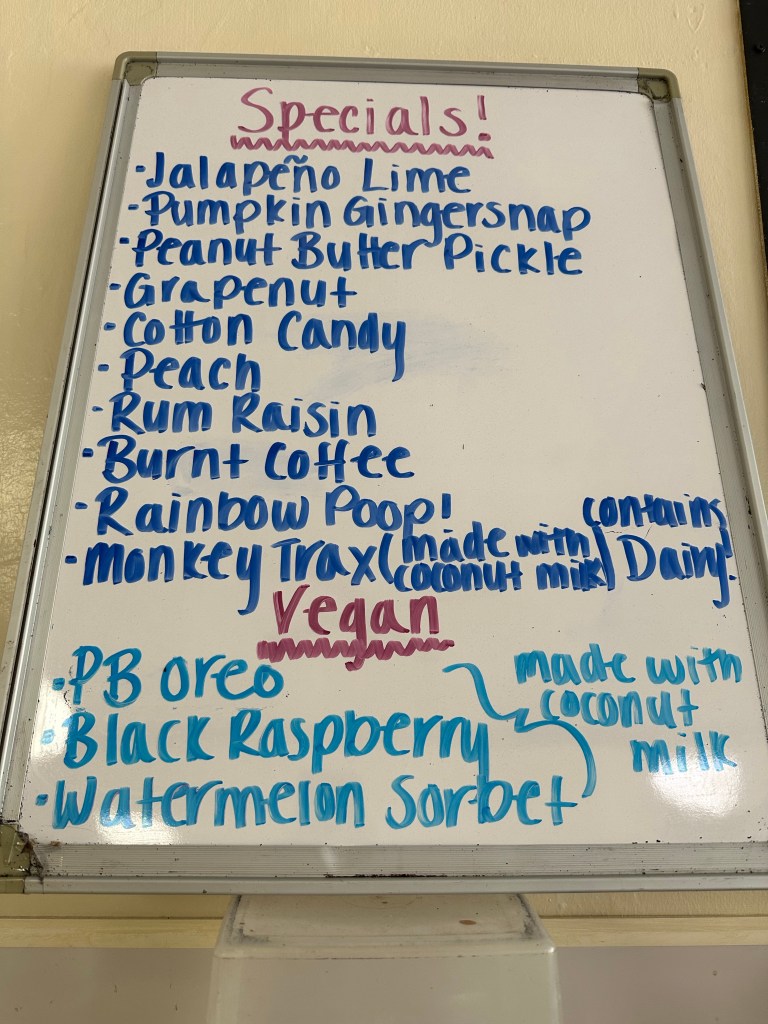 Specials!
·Jalapeño Lime
·Pumpkin Gingersnap
·Peanut Butter Pickle
·Grapenut
·Cotton Candy
·Peach
·Rum Raisin
·Burnt Coffee
·Rainbow Poop!
·Monkey Trax (made with coconut milk) contains Dairy!
Vegan
·PB Oreo
·Black Raspberry
·Watermelon Sorbet
made with
coconut
milk